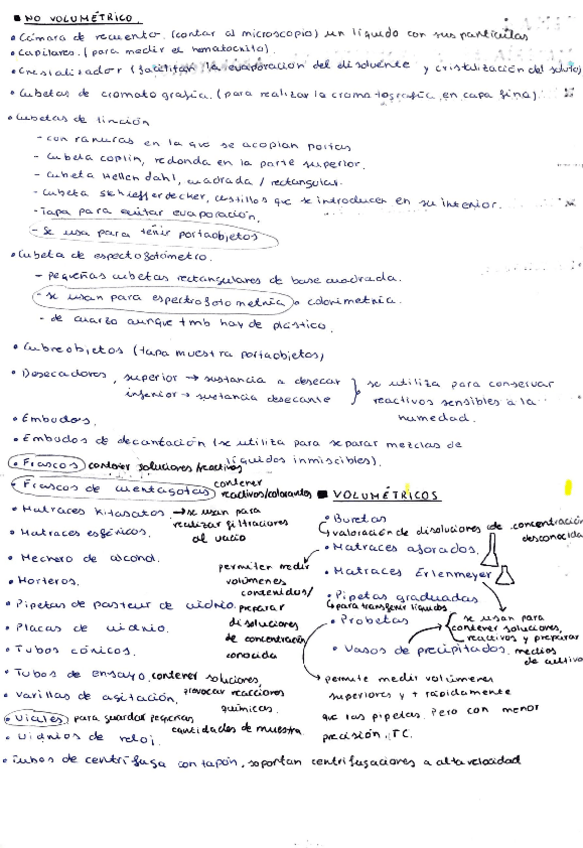 ■ NO VOLUMÉTRICO.
• Cámara de recuento. (contar al microscopio) un líquido con sus partículas
• Capilares. (para medir el hematocrito).
• Cristalizador (facilitan la evaporación del disolvente y cristalización del soluto)
• Cubetas de cromatografía. (para realizar la cromatografía en capa fina).
• Cubetas de tinción
- con ranuras en la que se acoplan portas
- Cubeta coplin, redonda en la parte superior.
- Cubeta Hellendahl, cuadrada / rectangular.
- Cubeta Schiefferdecker, cestillos que se introducen en su interior.
- Tapa para evitar evaporación.
- Se usa para teñir portaobjetos
• Cubeta de espectofotómetro.
- pequeñas cubetas rectangulares de base cuadrada.
- se usan para espectrofotometria o colorimetria.
- de cuarzo aunque tmb hay de plástico.
• Cubreobjetos (tapa muestra portaobjetos)
• Desecadores, superior → sustancia a desecar } se utiliza para conservar
inferior → sustancia desecante reactivos sensibles a la
humedad.
• Embudos.
• Embudos de decantación (se utiliza para separar mezclas de
líquidos inmiscibles).
• Frascos contener soluciones/reactivos
• Frascos de cuentagotas contener
reactivos/colorantes
• Matraces Kitasatos → se usan para
realizar filtraciones
al vacio
• Matraces esféricos.
• Mechero de alcohol.
• Morteros.
• Pipetas de pasteur de vidrio.
• Placas de vidrio.
• Tubos cónicos.
• Tubos de ensayo. contener soluciones,
provocar reacciones
químicas.
• Varillas de agitación.
• Viales para guardar pequeñas
cantidades de muestra.
• Vidrios de reloj.
• Tubos de centrífuga con tapón. soportan centrifugaciones a alta velocidad
■ VOLUMÉTRICOS
• Buretas
↳ valoración de disoluciones de concentración
desconocida
• Matraces aforados.
permiten medir
volúmenes
contenidos/
preparar
disoluciones
de concentración
conocida
• Matraces Erlenmeyer
• Pipetas graduadas
↳ para transferir líquidos
• Probetas
se usan para
contener soluciones,
reactivos y preparar
medios
de cultivo
• Vasos de precipitados.
permite medir volúmenes
superiores y + rápidamente
que las pipetas. Pero con menor
precisión. TC.